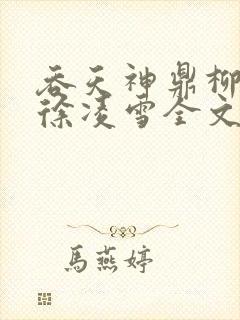 吞天神鼎柳
徐凌雪全文
馬燕婷